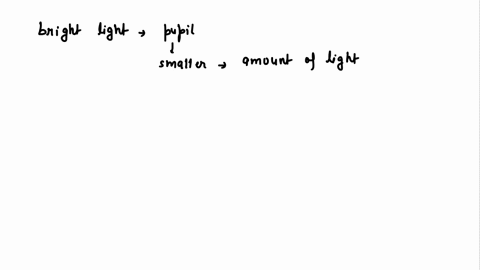 bright light → pupil
↓
smaller → amount of light